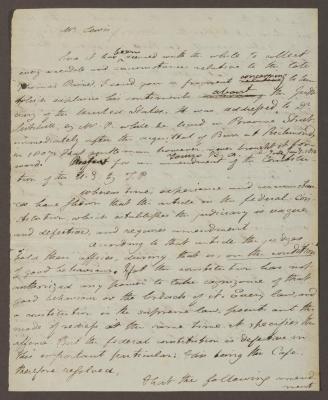 Mr. Carver
Since it has been received with the while to collect
every anecdote and circumstance relative to the late
Thomas Paine, I send you a fragment concerning to
explains his sentiments about the Judi
ciary of the United States. It was addressed to Dr
Mitchill, by Mr P. while he lived in Broome Street,
immediately after the acquittal of Burr at Richmond,
in 1807. That gentleman however never brought it for
ward. for an amendment of the Constitu
tion of the U.S. by T.P.
Whereas time, experience and circumstan
ces have shewn that the article in the federal con-
stitution which establishes the judiciary is vague
and defective, and requires amendment.
According to that article the judges
hold their offices, during that is, on the condition
of good behaviour. Yet the constitution has not
authorized any power to take cognizance of that
good behaviour or the breach of it. Every law, and
a constitution is the supreme law, points out the
mode of redress at the same time it specifies the
offence. But the federal constitution is defective in
this important particular. This being the Case,
therefore resolved,
That the following amend
ment